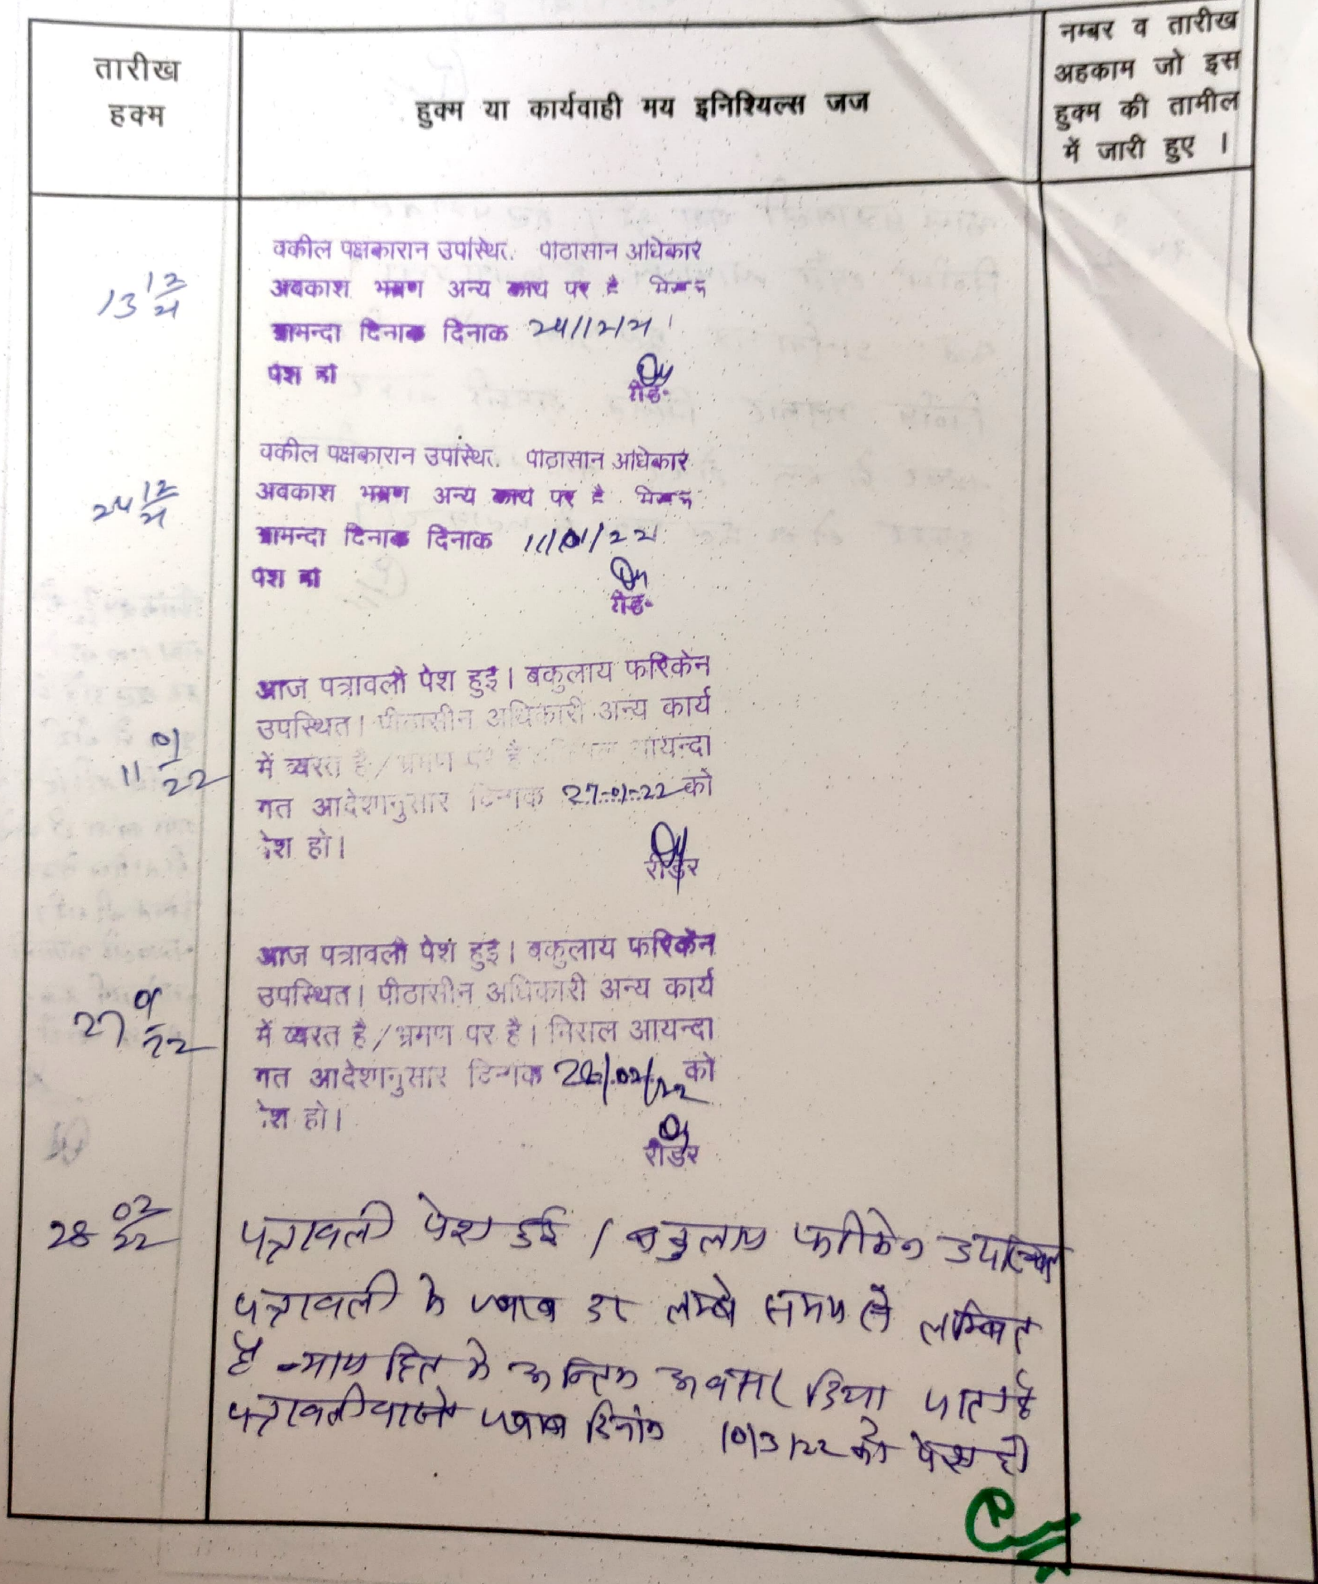 तारीख
हक्म
हुक्म या कार्यवाही मय इनिशियल्स जज
नम्बर व तारीख
अहकाम जो इस
हुक्म की तामील
में जारी हुए ।
13 12/21
वकील पक्षकारान उपस्थित. पीठासीन अधिकार
अवकाश भ्रमण अन्य कार्य पर है
आमन्दा दिनांक दिनाक 24/12/21
पेश हो
रीड-
24 12/21
वकील पक्षकारान उपस्थित. पीठासीन अधिकार
अवकाश भ्रमण अन्य कार्य पर है
आमन्दा दिनांक दिनाक 11/01/22
पेश हो
रीड-
11 01/22
आज पत्रावली पेश हुई। बकुलाय फरिकेन
उपस्थित। पीठासीन अधिकारी अन्य कार्य
में व्यस्त है/भ्रमण पर है आयन्दा
गत आदेशानुसार दिनांक 27-01-22 को
पेश हो।
रीडर
27 01/22
आज पत्रावली पेश हुई। बकुलाय फरिकेन
उपस्थित। पीठासीन अधिकारी अन्य कार्य
में व्यस्त है/भ्रमण पर है। मिसल आयन्दा
गत आदेशानुसार दिनांक 28/02/22 को
पेश हो।
रीडर
28 02/22
पत्रावली पेश हुई। बकुलाय फरीकेन उपस्थित
पत्रावली में जवाब लम्बे समय से लम्बित
है न्याय हित में अन्तिम अवसर दिया जाता है
पत्रावली वास्ते जवाब दिनांक 10/3/22 को पेश हो